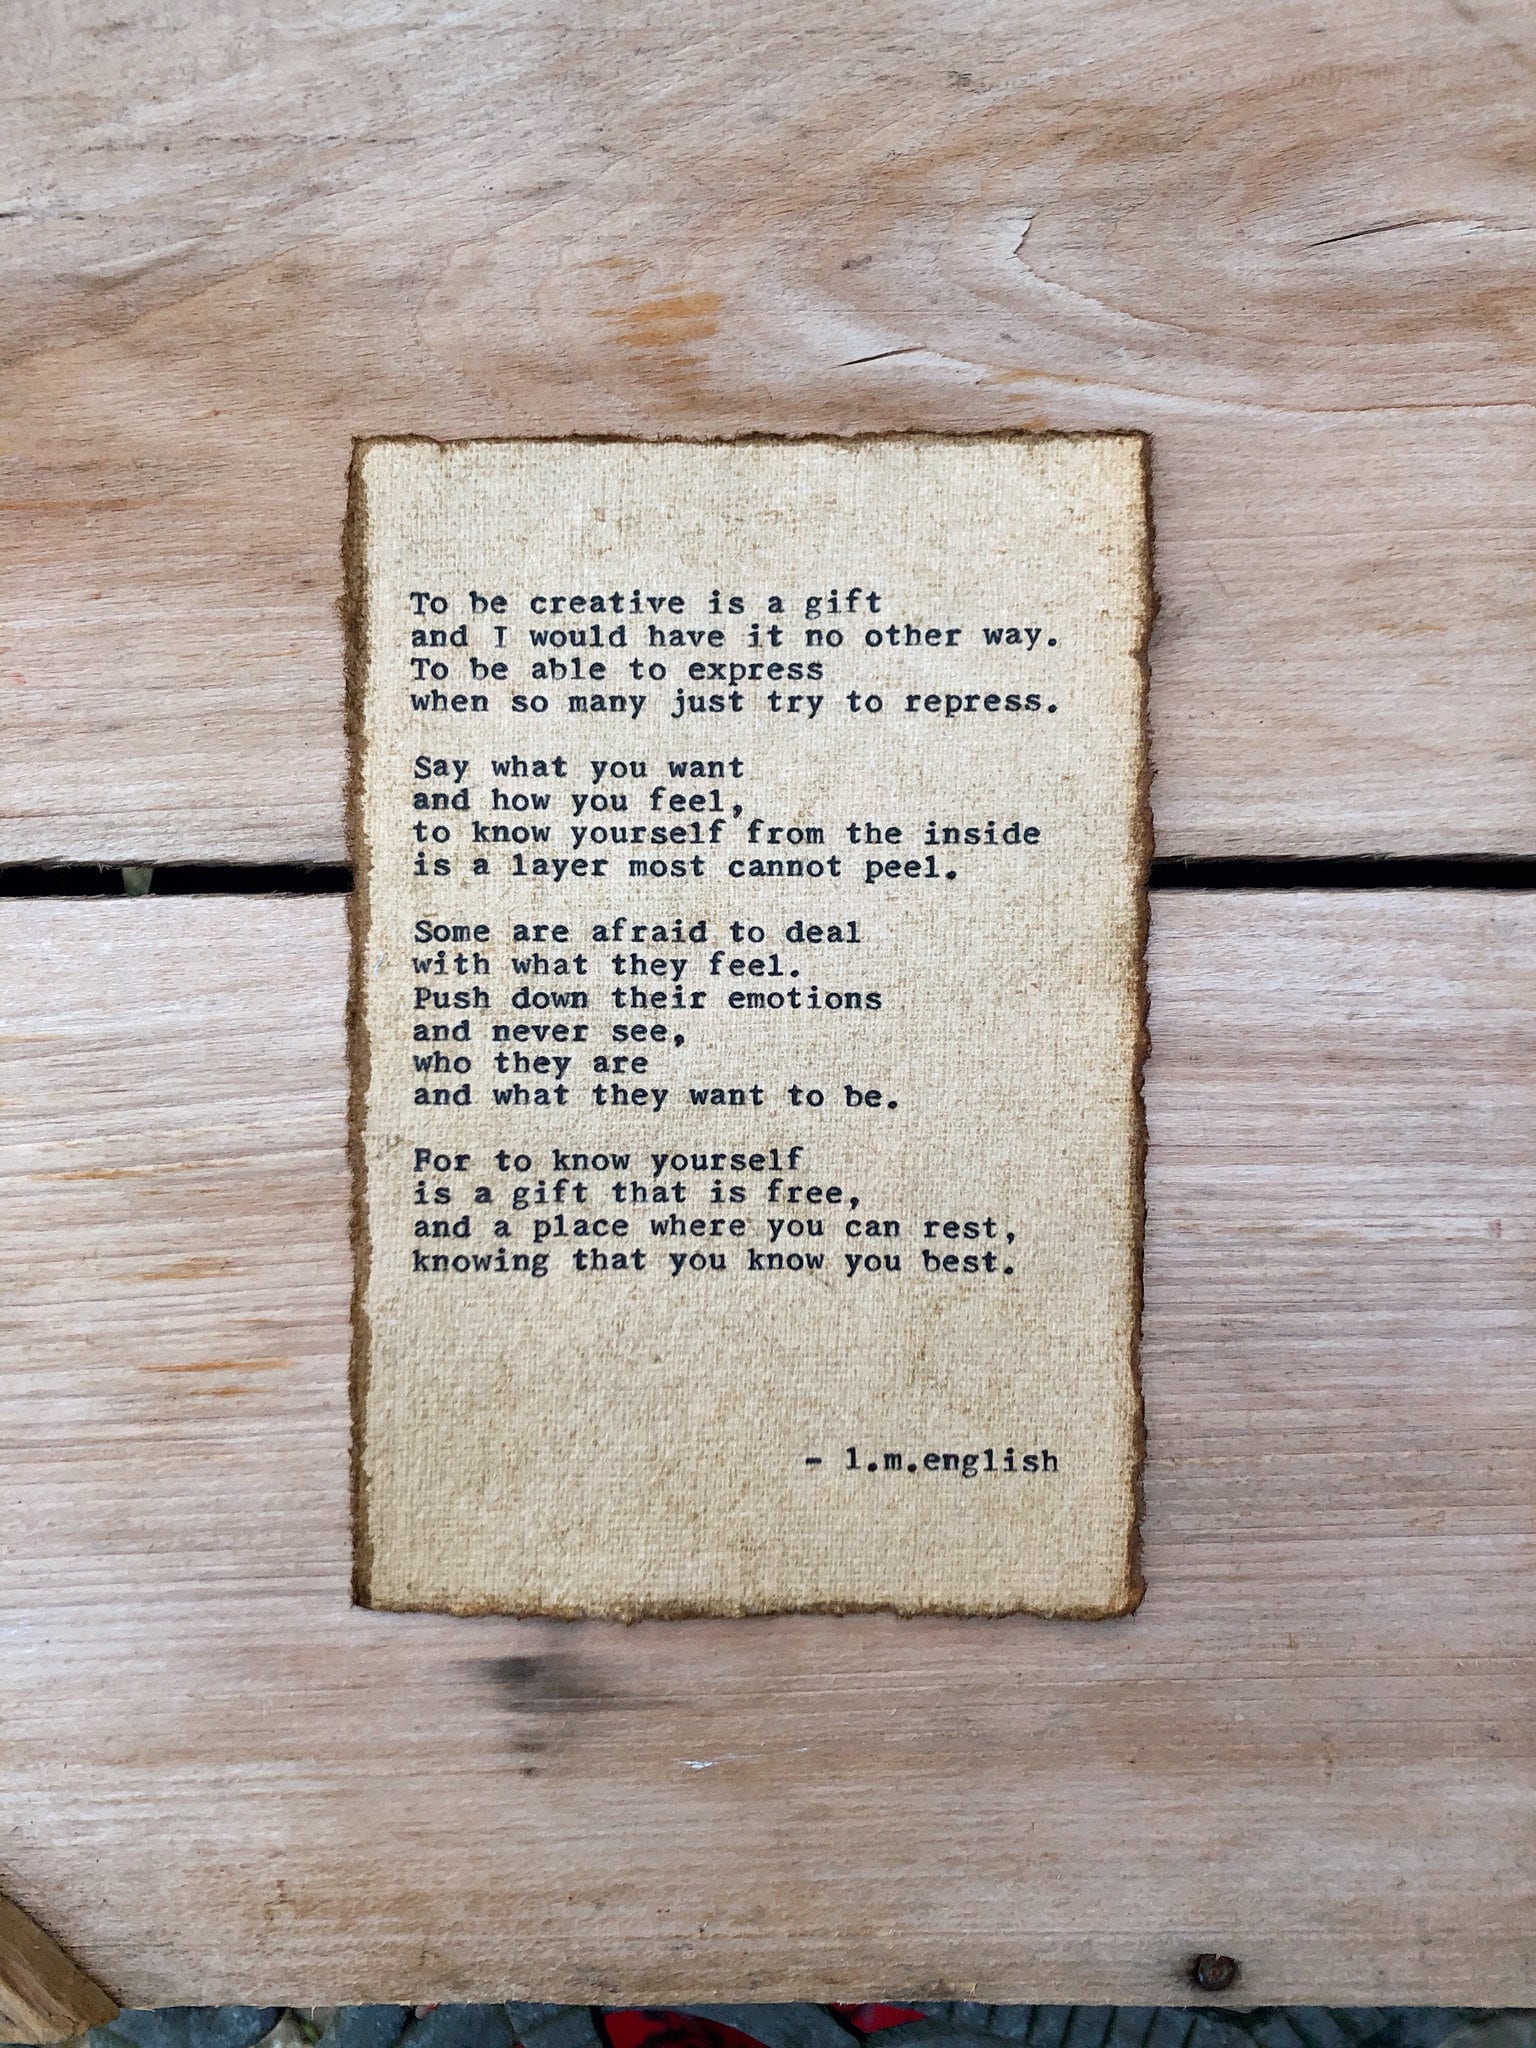 To be creative is a gift
and I would have it no other way.
To be able to express
when so many just try to repress.

Say what you want
and how you feel,
to know yourself from the inside
is a layer most cannot peel.

Some are afraid to deal
with what they feel.
Push down their emotions
and never see,
who they are
and what they want to be.

For to know yourself
is a gift that is free,
and a place where you can rest,
knowing that you know you best.

- l.m.english